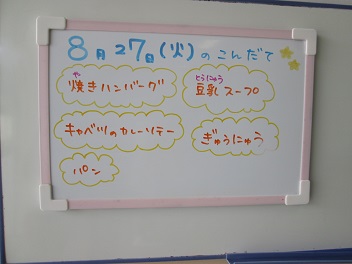 8月27日(火)のこんだて
や
焼きハンバーグ
とうにゅう
豆乳スープ
キャベツのカレーソテー
ぎゅうにゅう
パン